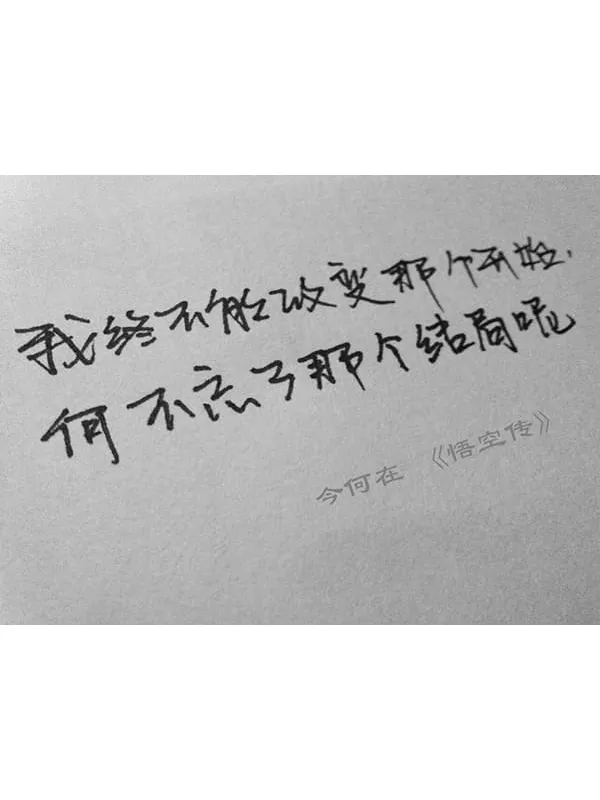 我终不能改变那个开始.
何不忘了那个结局呢
今何在 《悟空传》